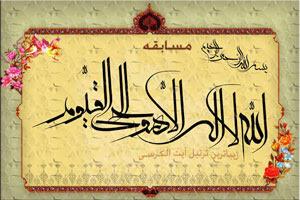 مسابقه
بسم الله الرحمن الرحیم
الله لا اله الا هو الحی القیوم
زیباترین ترتیل آیت الکرسی